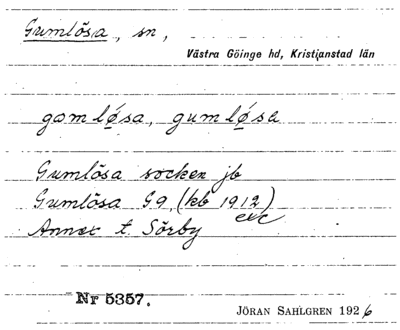 Gumlösa, sn,
Västra Göinge hd, Kristianstad län
gomlø̱sa, gumlø̱sa
Gumlösa socken jb
Gumlösa G9 (kb 1912)
exc
Annex t. Sörby
Nr 5357.
JÖRAN SAHLGREN 1926